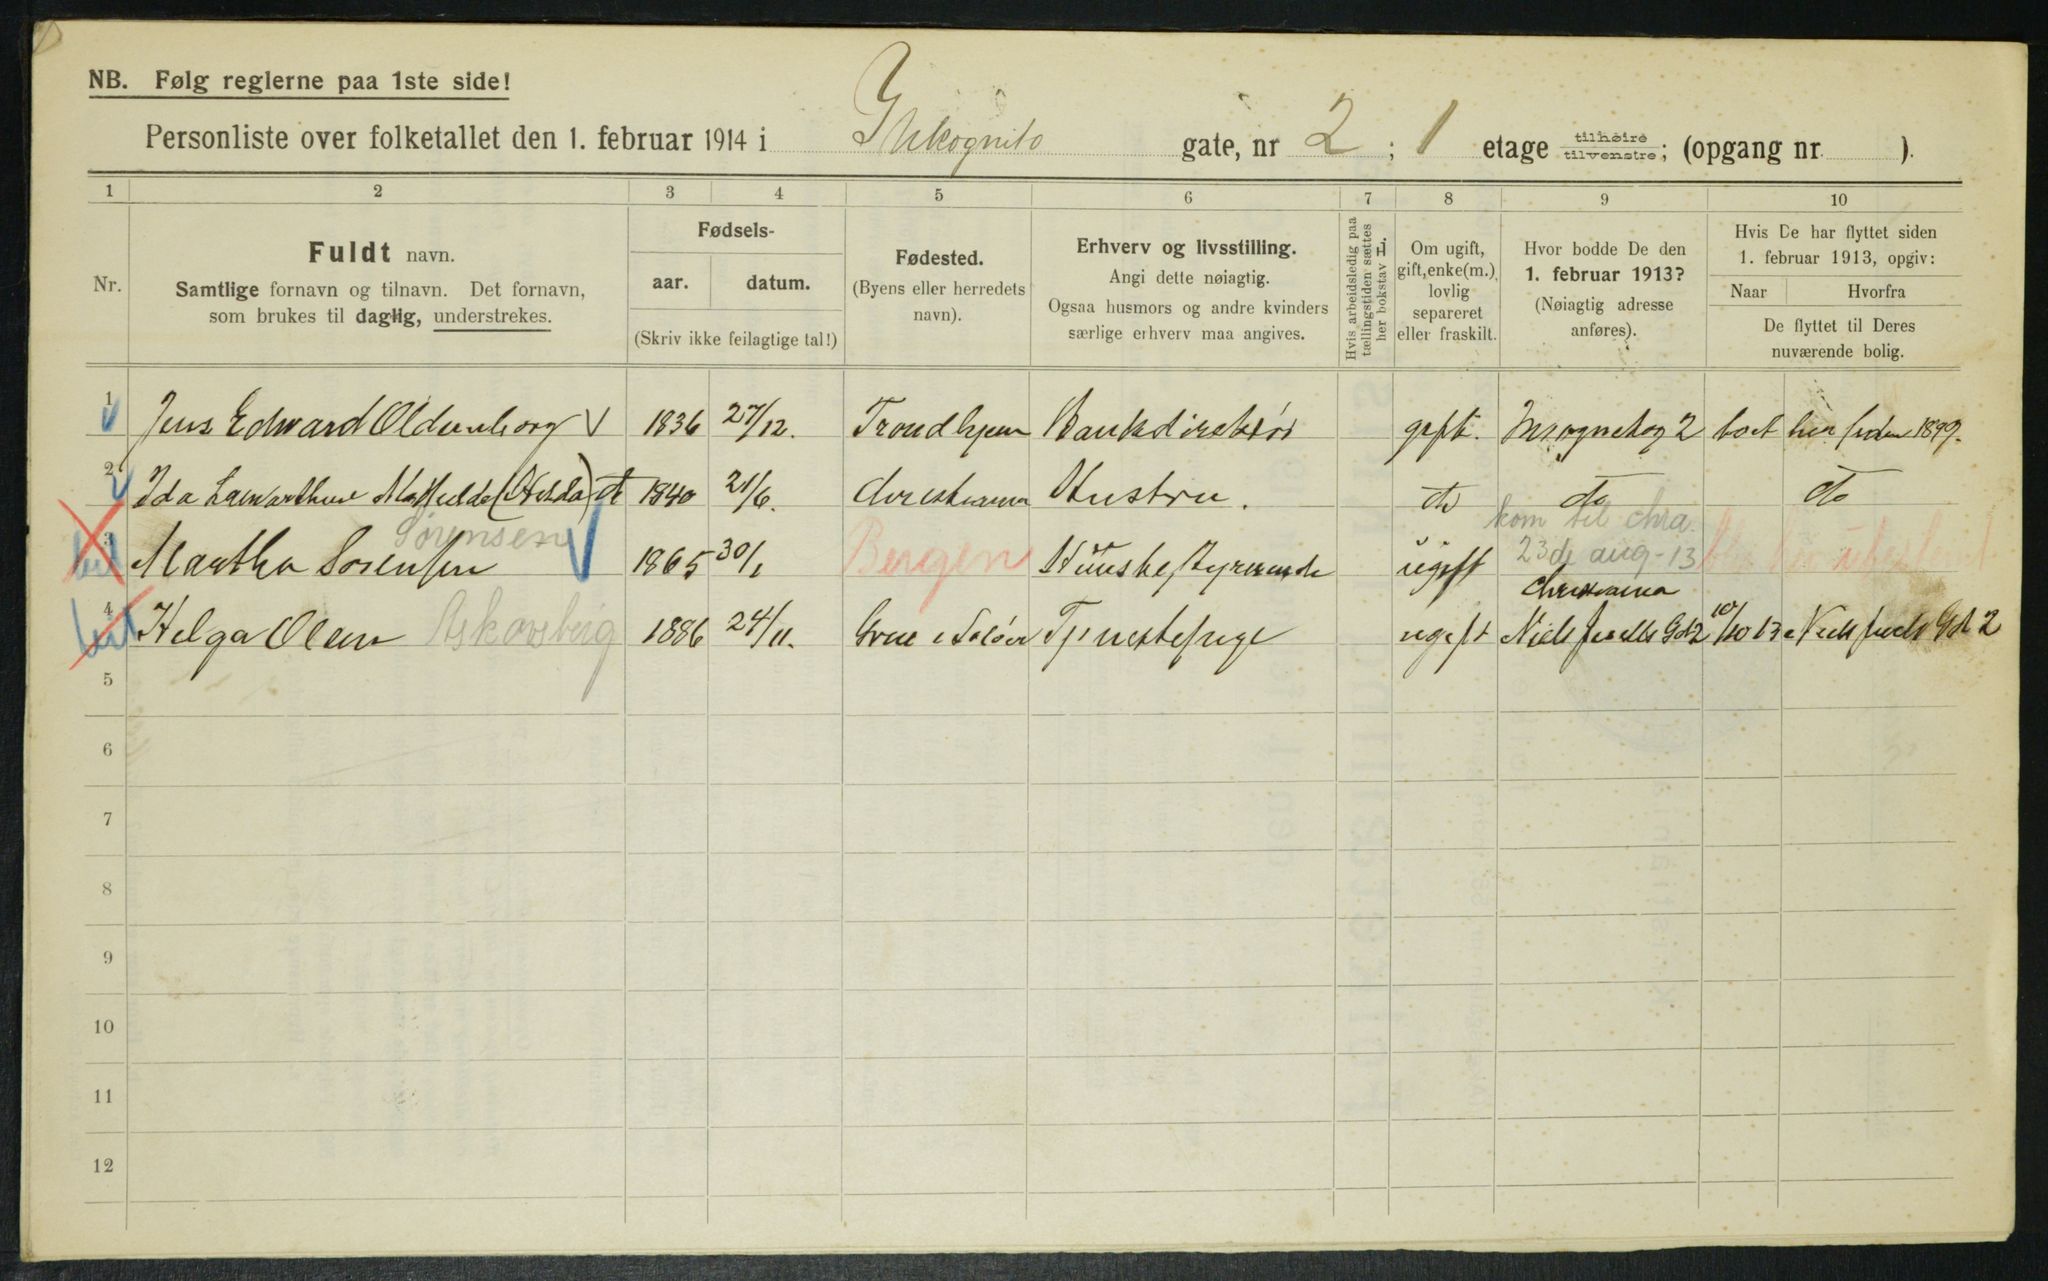 NB. Følg reglerne paa 1ste side!
Personliste over folketallet den 1. februar 1914 i Inkognito gate, nr 2 ; 1 etage tilhøire tilvenstre; (opgang nr. ).
1 2 3 4 5 6 7 8 9 10
Nr.
Fuldt navn.
Samtlige fornavn og tilnavn. Det fornavn,
som brukes til daglig, understrekes.
Fødsels-
aar. datum.
(Skriv ikke feilagtige tal!)
Fødested.
(Byens eller herredets
navn).
Erhverv og livsstilling.
Angi dette nøiagtig.
Ogsaa husmors og andre kvinders
særlige erhverv maa angives.
Hvis arbeidsledig paa
tællingstiden sættes
her bokstav L.
Om ugift,
gift, enke(m.),
lovlig
separeret
eller fraskilt.
Hvor bodde De den
1. februar 1913?
(Nøiagtig adresse
anføres).
Hvis De har flyttet siden
1. februar 1913, opgiv:
Naar Hvorfra
De flyttet til Deres
nuværende bolig.
1 Jens Edward Oldenborg 1836 27/12. Trondhjem Bankdirektør gift. 2 boet her siden 1899.
2 Ida (Hilda) do 1840 21/6. Christiania Hustru. do do do
Sørensen kom til Chra.
3 Martha Sørensen 1865 30/1 Bergen Husbestyrerinde ugift 23de aug-13
Christiania
4 Helga Olsen 1886 24/11. Grue i Solør Tjenestepige ugift Niels Juels Gd 2 10/10 13 Niels Juels Gd 2
5
6
7
8
9
10
11
12